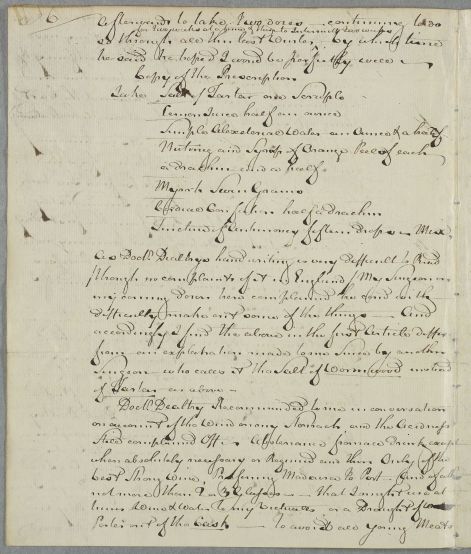 6
afterwards to take Two doses — continuing to do
for two weeks at a time & then to Intermit two weeks
so through all the last Winter, by which time
he said he hoped I would be perfectly well —
Copy of the Prescription
Take Salt of Tartar one Scruple
Lemon Juice half an ounce
Simple Alexeterial Water an Ounce & a half
Nutmeg and Syrup of Orange Peel of each
a drachm and a half
Myrrh Seven Grains
Cordial Confection half a drachm
Tincture of Antimony fifteen drops — Mix
As Doctr. Dealtrys hand writing is very difficult to Read
(though no complaints of it in England) My Surgeon on
my coming down here complained he found in the
difficulty make out some of the things — And
accordingly I find the above in the first Article differ
from an explanation made to me since by another
Surgeon who calls it the Salt of Wormwood instead
of Tartar as above —
Doctr. Dealtry Recommended to me in conversation
on account of the Wind on my Stomach and the Acidness
I had complained Off — Abstenance from all drink except
when absolutely necessary or Required and then Only of the
best Strong Wine, Preferring Madeira to Port — And of all
not more than 2 or 3 Glasses — that I might use at
times Wine & Water to my Victuals or a Draught of
Porter out of the Cask — to avoid all young Meats